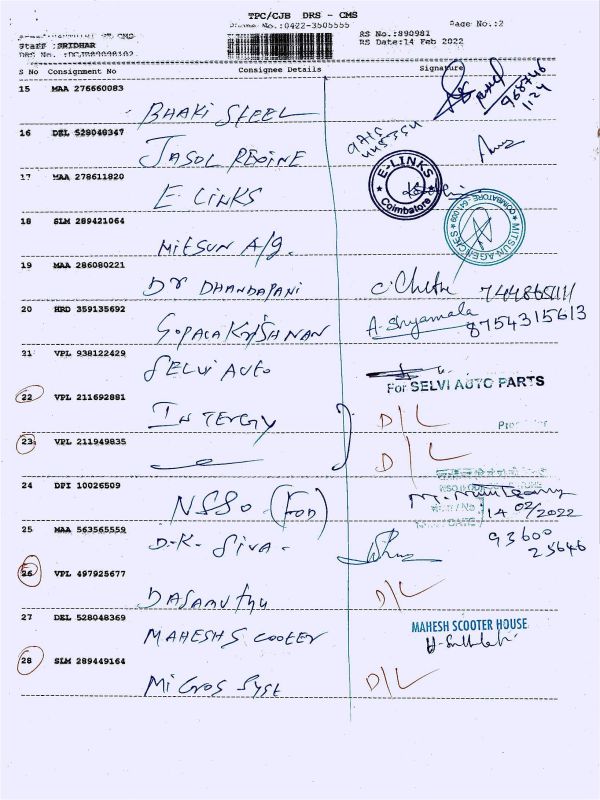 TPC/CJB DRS - CMS
Phone No.:0422-3505555 Page No.:2
RS No.:890981
Staff :SRIDHAR RS Date:14 Feb 2022
S No Consignment No Consignee Details Signature
15 MAA 276660083
BHAKI STEEL
968746
1124
16 DEL 528048347
JASOL
17 MAA 278611820
E-LINKS
E-LINKS
Coimbatore
18 SLM 289421064
MITSUN A/g.
MITSUN AGENCIES
COIMBATORE - 641 009
19 MAA 286080221
DR DHANDAPANI
20 HRD 359135692
GOPALAKRISHNAN A-Shyamala
8754315613
21 VPL 938122429
SELVI AUTO
For SELVI AUTO PARTS
22 VPL 211692881
INTERGY D/L
23 VPL 211949835
D/L
24 DPI 10026509
NSSO (FOD)
14/02/2022
25 MAA 563565559
D.K. SIVA -
93600
25646
26 VPL 497925677
D/L
27 DEL 528048369
MAHESH SCOOTER
MAHESH SCOOTER HOUSE
28 SLM 289449164
MICROS SYST D/L